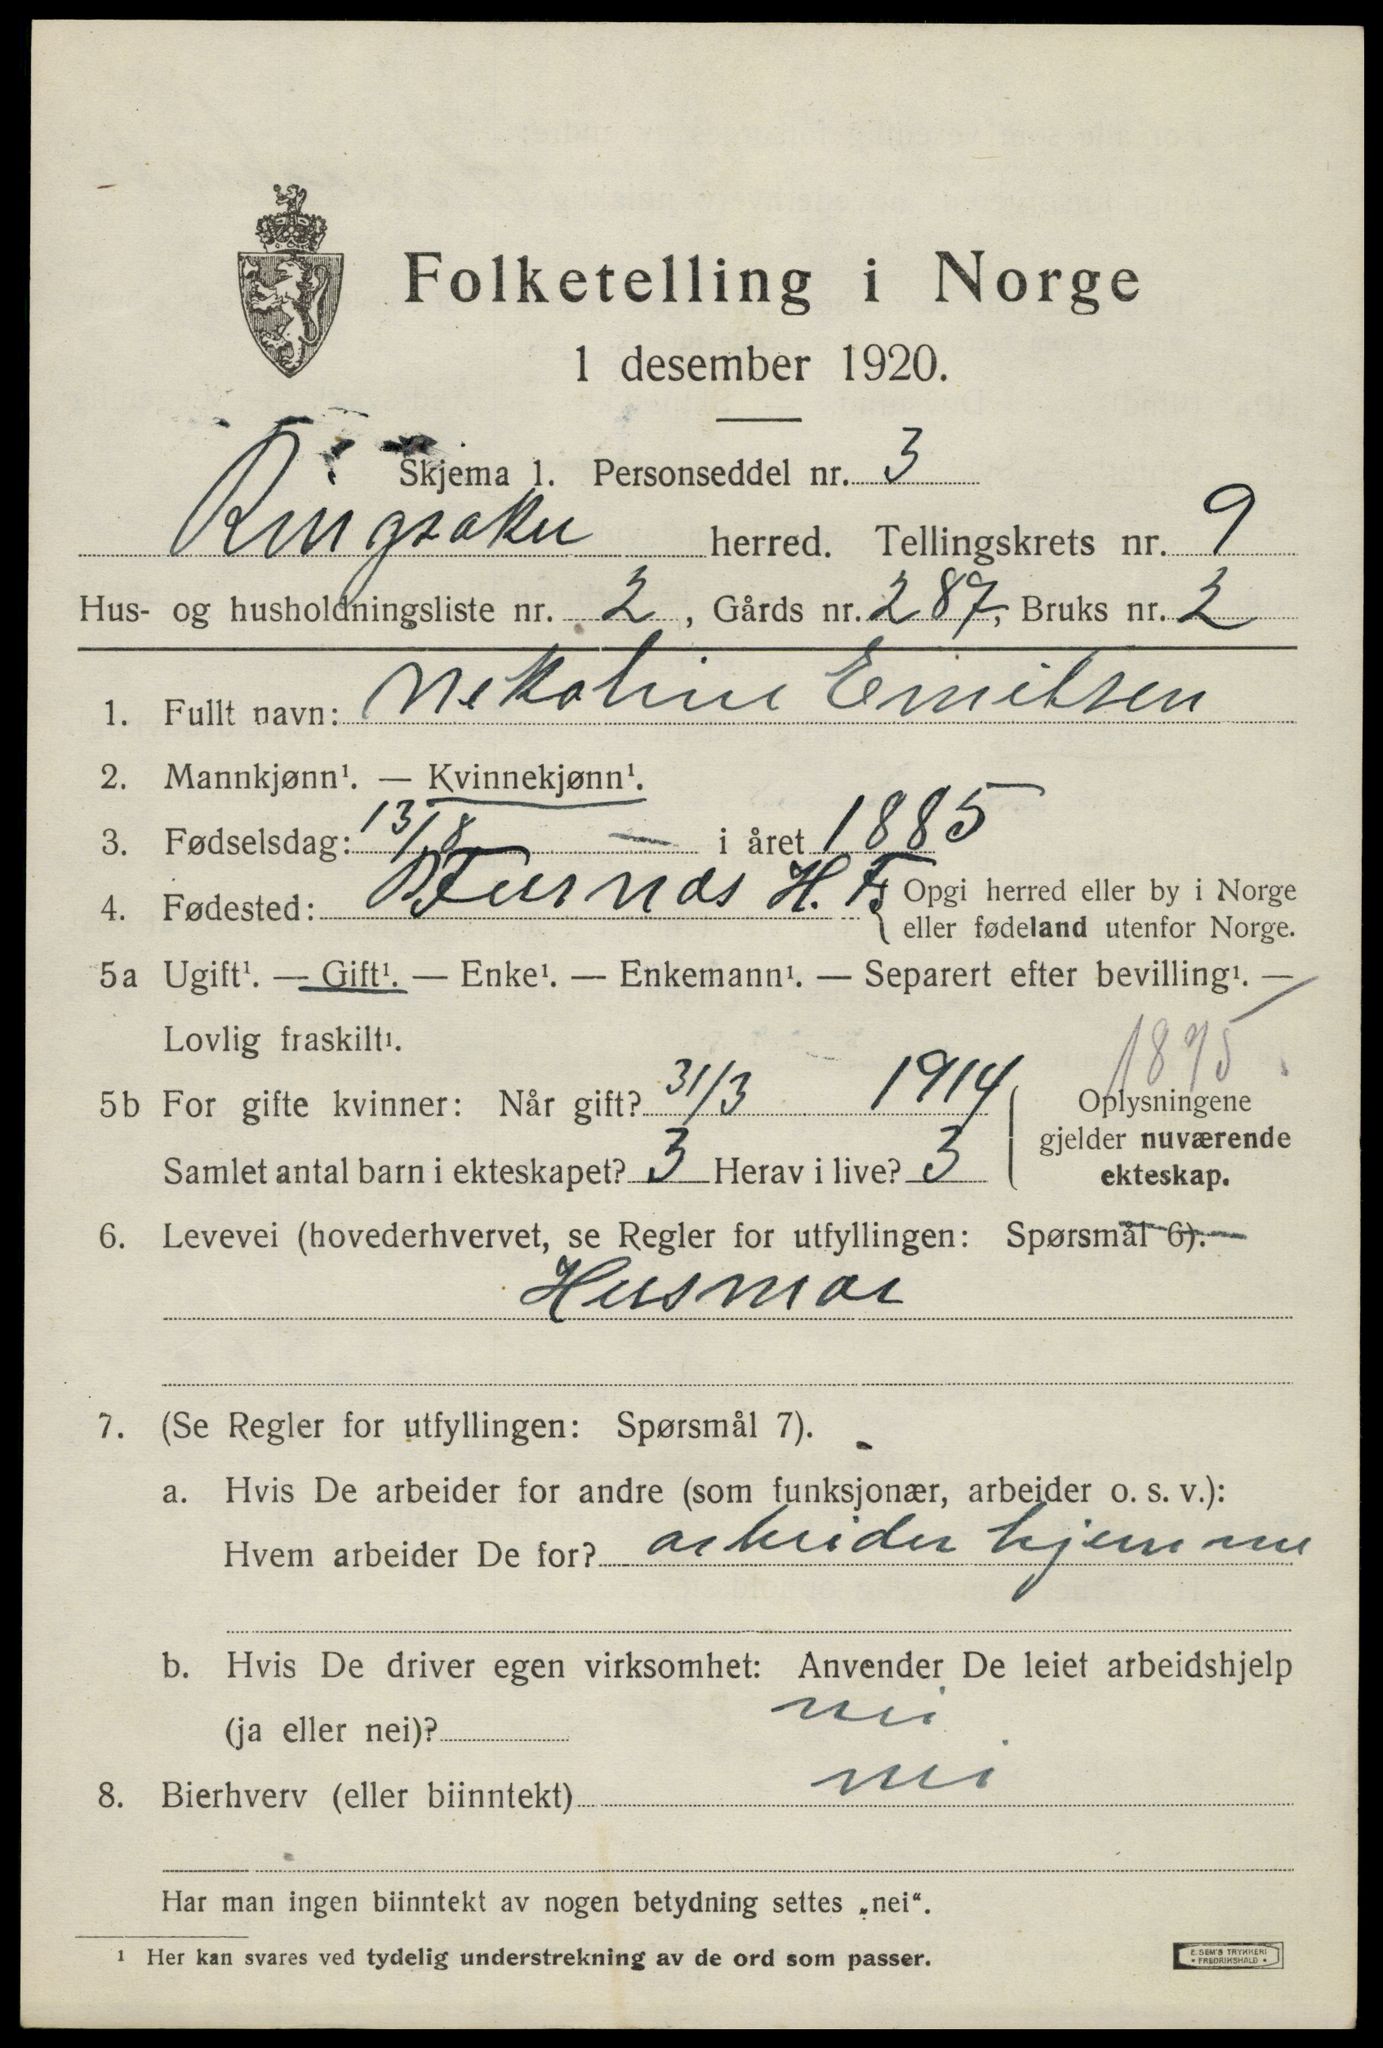 Folketelling i Norge
1 desember 1920.
Skjema 1. Personseddel nr. 3
Ringsaker herred. Tellingskrets nr. 9
Hus- og husholdningsliste nr. 2, Gårds nr. 287, Bruks nr. 2
1. Fullt navn: Nekoline Emilsen
2. Mannkjønn¹. — Kvinnekjønn¹.
3. Fødselsdag: 13/8 — i året 1885
4. Fødested: Furnes H. F. Opgi herred eller by i Norge
eller fødeland utenfor Norge.
5a Ugift¹. — Gift¹. — Enke¹. — Enkemann¹. — Separert efter bevilling¹. —
Lovlig fraskilt¹.
1895
5b For gifte kvinner: Når gift? 31/3 1914 Oplysningene
gjelder nuværende
Samlet antal barn i ekteskapet? 3 Herav i live? 3 ekteskap.
6. Levevei (hovederhvervet, se Regler for utfyllingen: Spørsmål 6).
Husmor
7. (Se Regler for utfyllingen: Spørsmål 7).
a. Hvis De arbeider for andre (som funksjonær, arbeider o. s. v.):
Hvem arbeider De for? arbeider hjemme
b. Hvis De driver egen virksomhet: Anvender De leiet arbeidshjelp
(ja eller nei)? nei
8. Bierhverv (eller biinntekt) nei
Har man ingen biinntekt av nogen betydning settes „nei“.
¹ Her kan svares ved tydelig understrekning av de ord som passer.
E. SEM'S TRYKKERI
• FREDRIKSHALD •